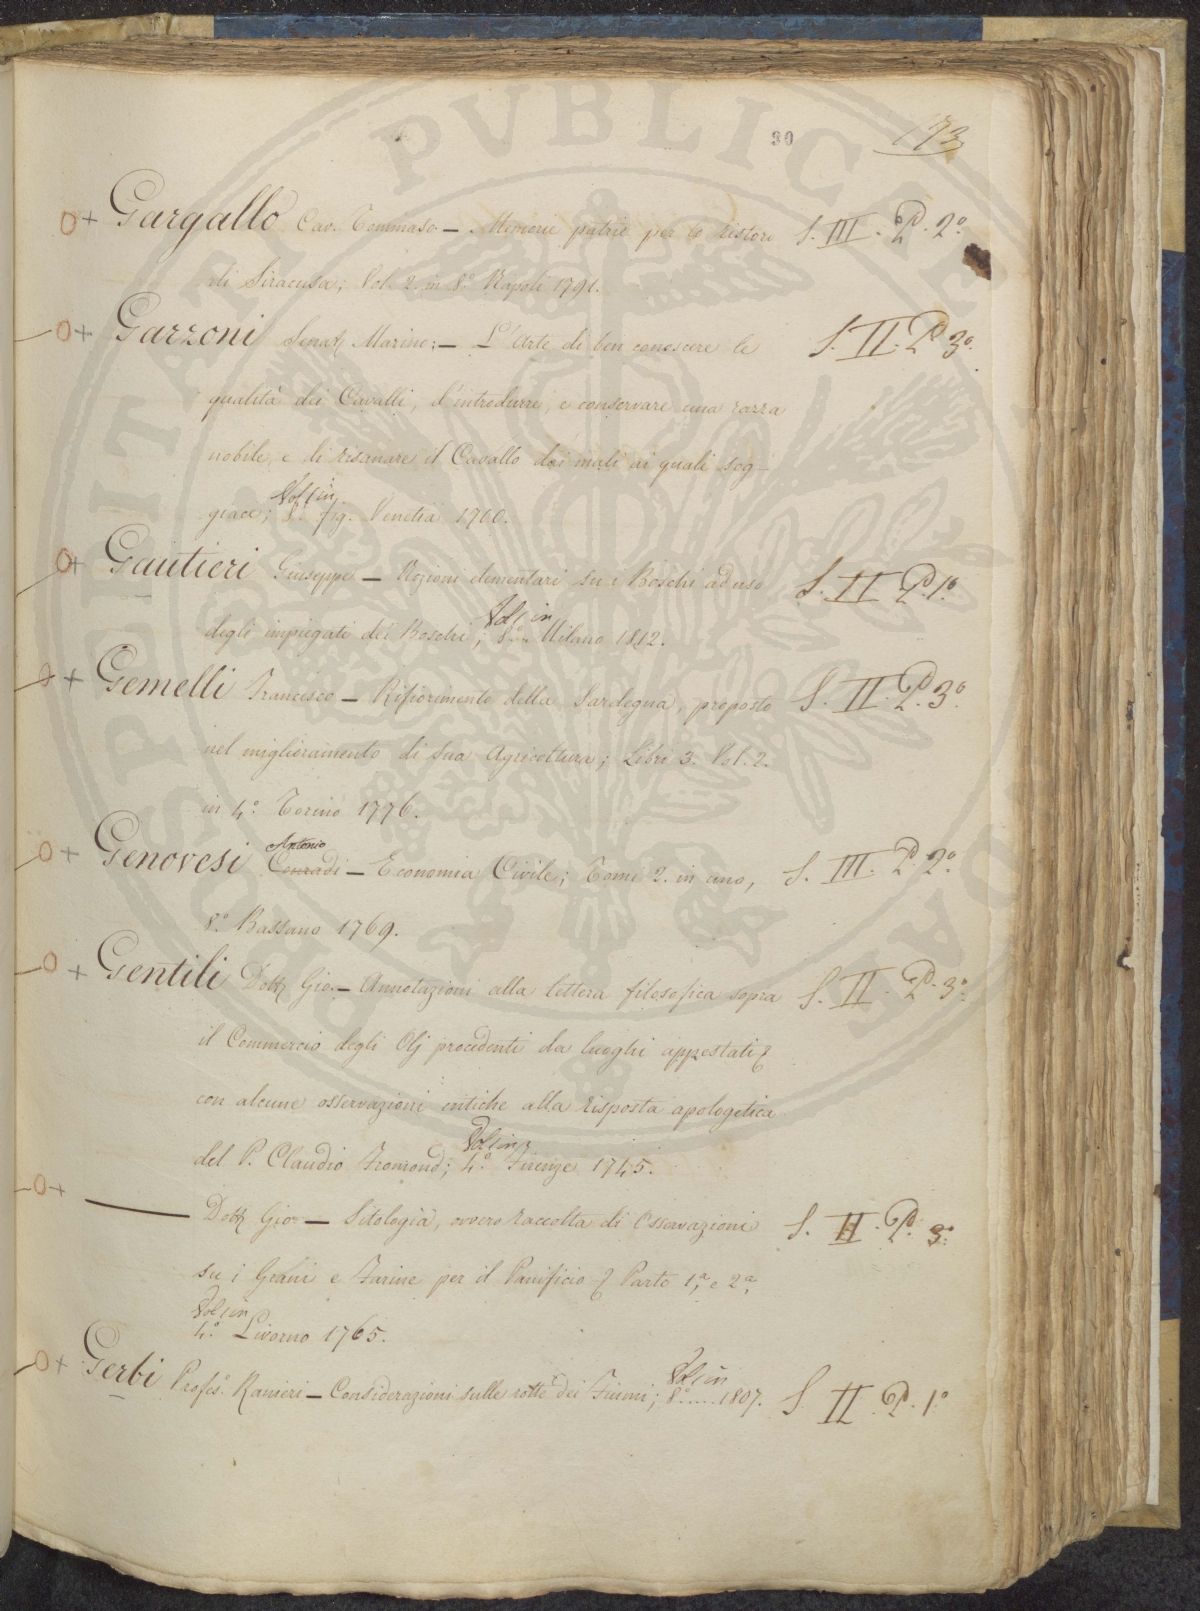 30
173
Gargallo Cav. Tommaso — Memorie patrie per lo ristoro S. III. P. 2º
di Siracusa; Vol. 2. in 8º Napoli 1791.
Garzoni Senat. Marino: — L'Arte di ben conoscere le S. II. P. 3º
qualità dei Cavalli, d'introdurre, e conservare una razza
nobile, e di risanare il Cavallo dai mali ai quali sog-
giace; Vol 1 in 8º fig. Venetia 1700.
Gautieri Giuseppe — Nozioni elementari su i Boschi ad uso S. II. P. 1º
degli impiegati dei Boschi; Vol 1 in 8º... Milano 1812.
Gemelli Francesco — Rifiorimento della Sardegna, proposto S. II. P. 3º
nel miglioramento di sua Agricoltura; Libri 3. Vol. 2.
in 4º Torino 1776.
Antonio
Genovesi Conradi — Economia Civile; Tomi 2. in uno, S. III. P. 2º
8º Bassano 1769.
Gentili Dott. Gio. — Annotazioni alla lettera filosofica sopra S. II. P. 3º
il Commercio degli Olj procedenti da luoghi appestati
con alcune osservazioni critiche alla Risposta apologetica
del P. Claudio Fromond; Vol 1 in 4º Firenze 1745.
— Dott. Gio. — Sitologia, ovvero raccolta di Osservazioni S. II. P. 3º
su i Grani e Farine per il Panificio Parte 1ª e 2ª,
Vol 1 in
4º Livorno 1765.
Gerbi Profes. Ranieri — Considerazioni sulle rotte dei Fiumi; Vol 1 in 8º.... 1807. S. II. P. 1º